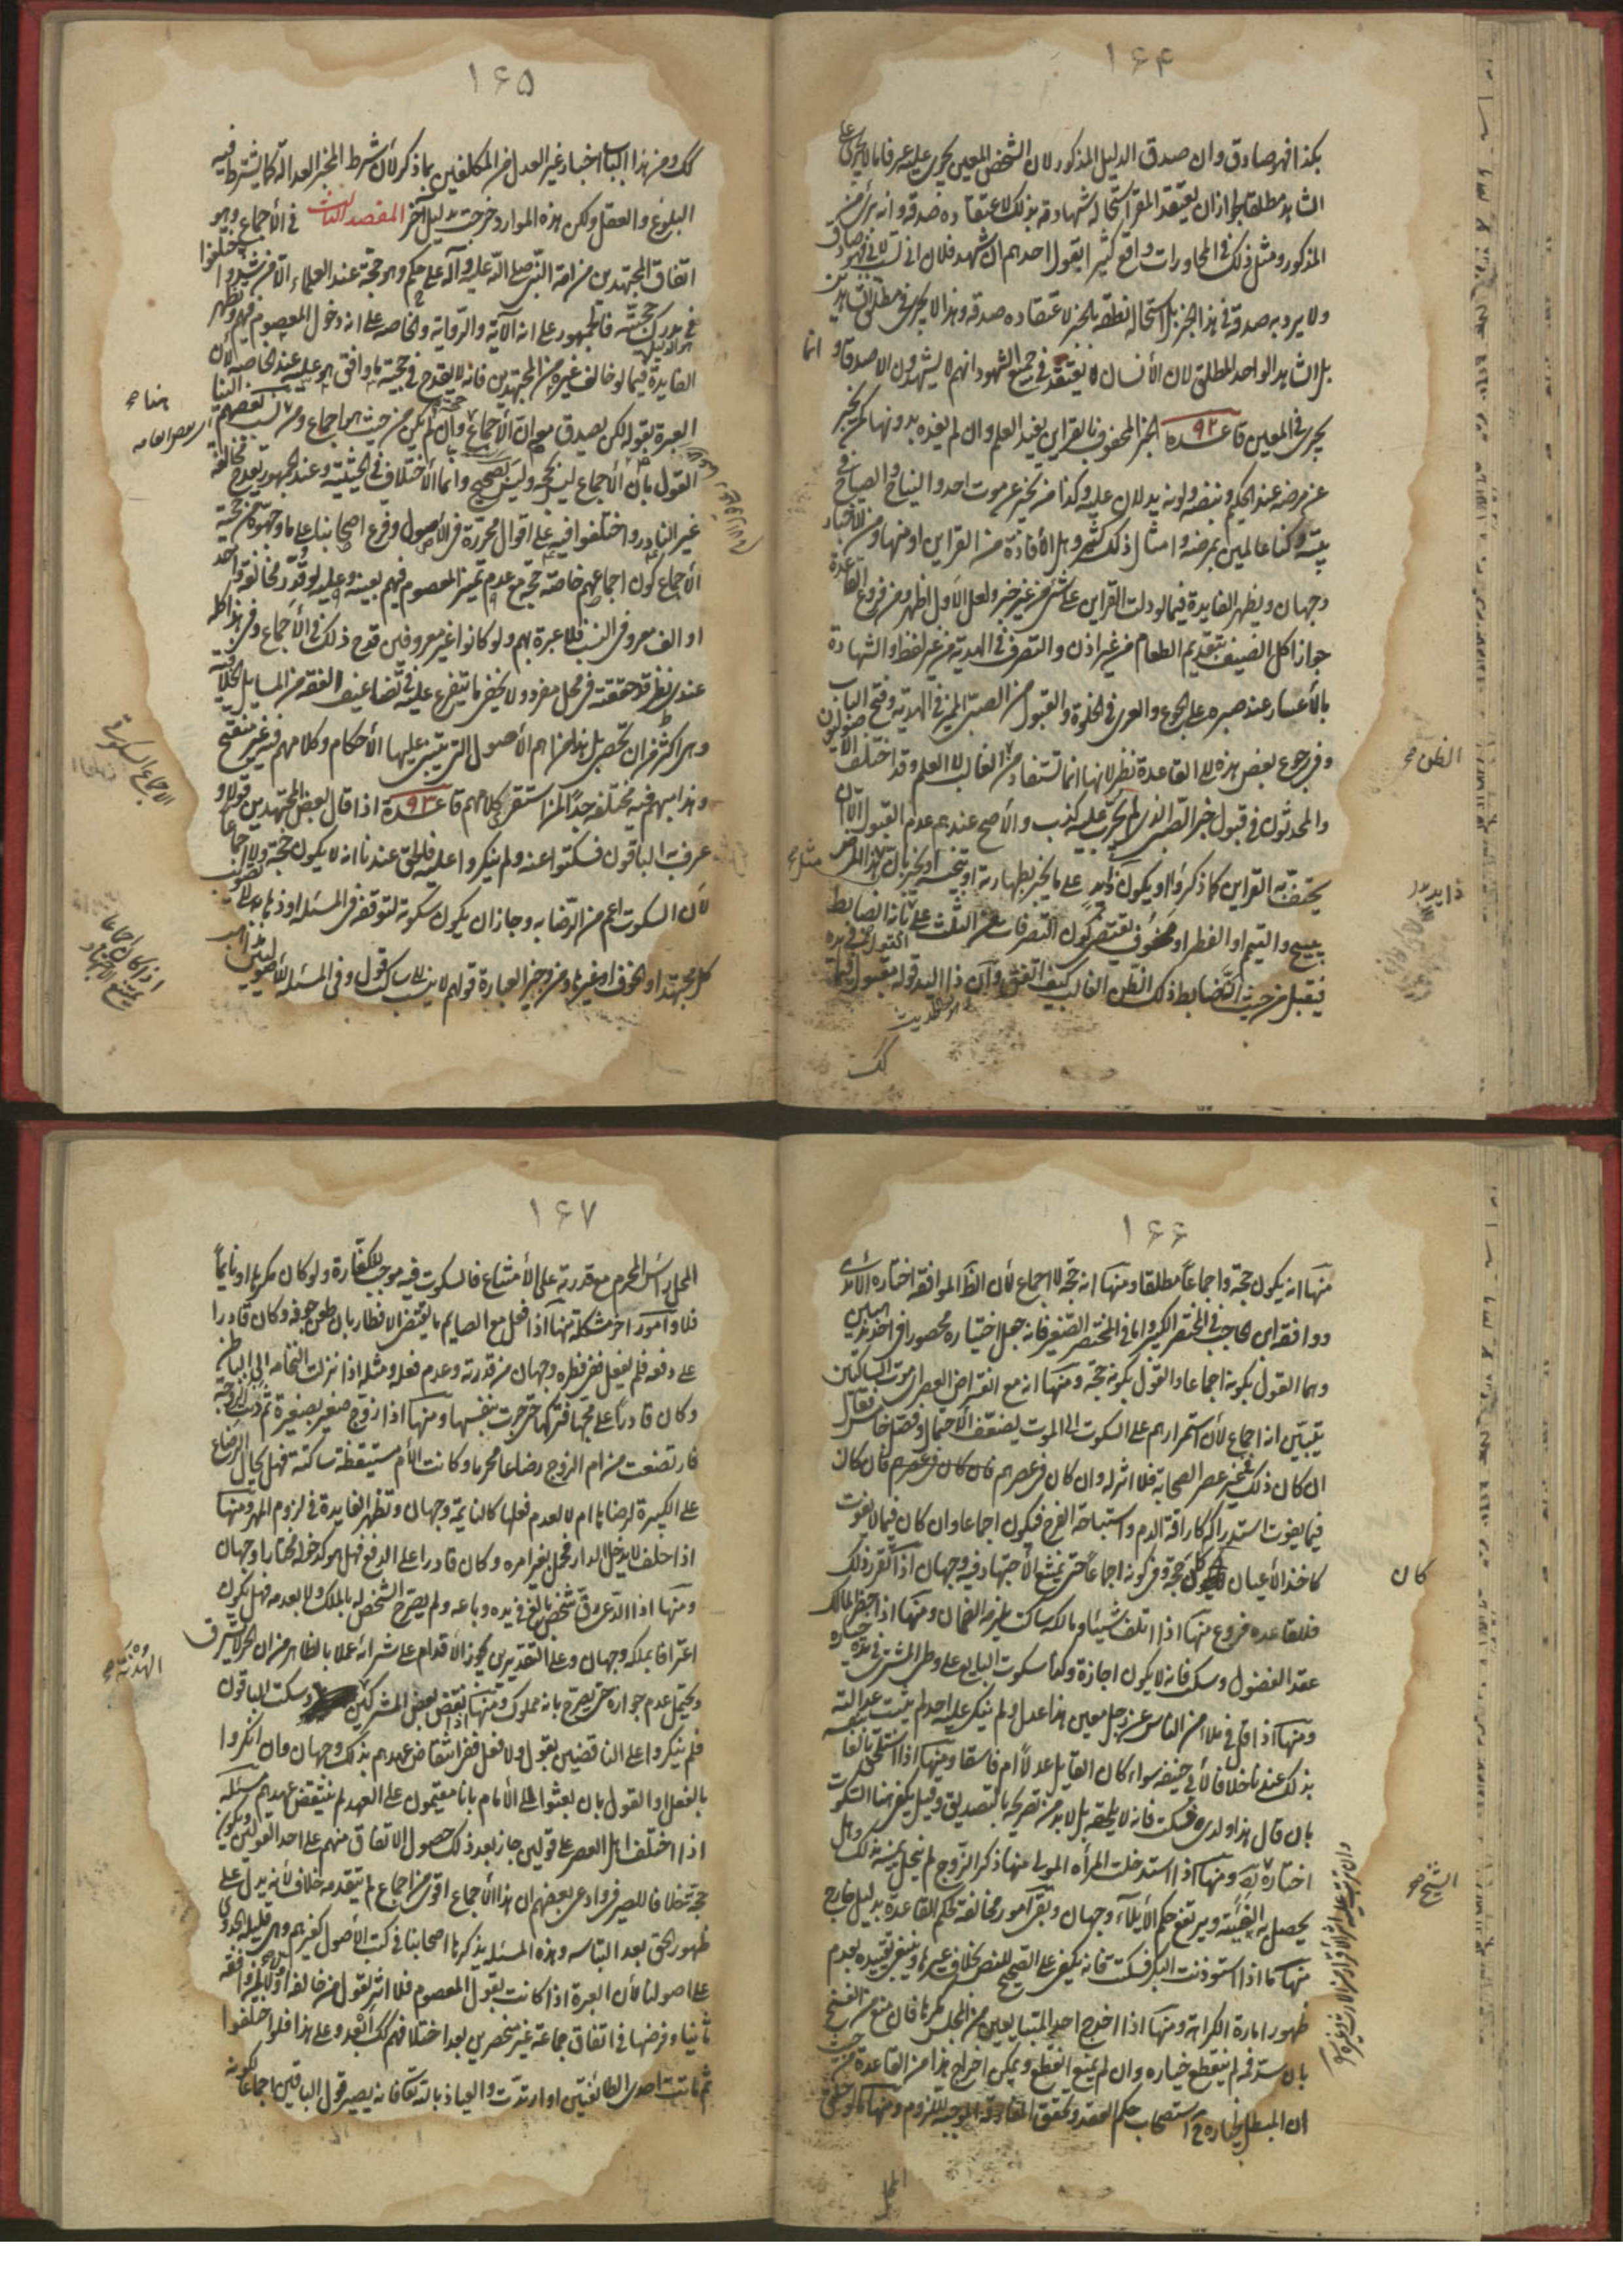 ۱۶۴
بكذا فهو صادق وان صدق الدليل المذكور لان الشخص المعين يجرى عليه عرفا ما لا يجرى على
الشاهد مطلقا لجواز ان يعتقد المقر استحالة شهادته بذلك لاعتقاده صدقه وانه برئ من
المذكور ومثل ذلك فى المحاورات واقع كثيرا يقول احدهم ان شهد فلان انى لست لابى فهو صادق
ولا يريد به صدقه فى هذا الخبر بل استحالة نطقه بالخبر لاعتقاده صدقه وهذا لا يجرى فى مطلق الشاهدين
بل الشاهد الواحد المطلق لان الانسان لا يعتقد فى جميع الشهود انهم لا يشهدون الا صدقا و انما
يجرى فى المعين قاعده ۹۲ الخبر المحفوف بالقراين يفيد العلم وان لم يفده بدونها كمن يخبر
عن مرضه عند الحكيم ونبضه ولونه يدلان عليه وكذا من يخبر عن موت احد والنياح والصياح فى
بيته وكنا عالمين بمرضه وامثال ذلك كثير وهل الافادة من القراين او منها ومن الاخبار
وجهان ويظهر الفايدة فيما لو دلت القراين على شئ من غير خبر ولعل الاول اظهر ومن فروع القاعدة
جواز اكل الضيف بتقديم الطعام من غير اذن والتصرف فى الهدية من غير لفظ والشهادة
بالاعسار عند صبره على الجوع والعرى فى الخلوة والقبول من الصبى المميز فى الهدية وفتح الباب
وفى رجوع بعض هذه الى القاعدة نظر لانها انما تستفاد من الغالب لا العلم وقد اختلف الاصوليون
والمحدثون فى قبول خبر الصبى الذى لم يجرب عليه كذب والاصح عندهم عدم القبول الا ان
يحتف به القراين كما ذكر او يكون على ما يخبر بطهارته او نجسه او يخبر بان هذا المرض
يبيح التيمم او الفطر او مخوف يقتضى كون التصرفات من الثلث على ثانه الضابط
فيقبل من حيث ان الضابط ذلك الظن الغالب كيف اتفق وان ذا اليد قوله مقبول فيما
الظن صح
كك
۱۶۵
كك ومن هذا الباب اخبار غير العدل من المكلفين بما ذكر لان شرط المخبر العدالة كما يشترط فيه
البلوغ والعقل ولكن هذه الموارد خرجت بدليل آخر المقصد الثالث فى الاجماع وهو
اتفاق المجتهدين من امة النبى صلى الله عليه وآله على حكم وهو حجة عند العلماء الا من شذ واختلفوا
فى مدرك حجيته فالجمهور على انه الآية والرواية والخاصة على انه دخول المعصوم فيهم ويظهر
الفايدة فيما لو خالف غيره من المجتهدين فانه لا يقدح فى حجية ما وافق هو عليه عند الخاصة لان
العبرة بقوله لكن يصدق معه ان الاجماع حجة وان لم يكن من حيث هو اجماع ومن ثم نسب بعضهم الينا
القول بان الاجماع ليس بحجة وليس بصحيح وانما الاختلاف فى الحيثية وعند الجمهور يقدح مخالفة
غير النادر واختلفوا فيه على اقوال محررة فى الاصول وفرع اصحابنا على ما وجهوه من حجية
الاجماع كون اجماعهم خاصة حجة مع عدم تميز المعصوم فيهم بعينه وعليه لو قدر مخالفة واحد
او الف معروفى النسب فلا عبرة بهم ولو كانوا غير معروفين قدح ذلك فى الاجماع وفى هذا كله
عندى نظر قد حققته فى محل مفرد ولا يخفى ما يتفرع عليه فى تضاعيف الفقه من المسايل الخلافية
وهى اكثر من ان تحصى بل هذا من اهم الاصول التى تبتنى عليها الاحكام وكلامهم فيه غير منقح
ومذاهبهم فيه مختلفة جدا لمن استقرى كلامهم قاعدة ۹۳ اذا قال بعض المجتهدين قولا و
عرف به الباقون فسكتوا عنه ولم ينكروا عليه فالحق عندنا انه لا يكون حجة ولا اجماعا
لان السكوت اعم من الرضا به وجاز ان يكون سكوته لتوقفه فى المسئله او ذهابه الى تصويب
كل مجتهد او لخوف او غيرها ومن وجيز العبارة قولهم لا ينسب الى ساكت قول وفى المسئلة للاصوليين مذاهب
الاجماع السكوتى
۱۶۶
منها انه يكون حجة واجماعا مطلقا ومنها انه حجة لا اجماع لان الظ الموافقة اختاره الآمدى
ووافقه ابن الحاجب فى المختصر الكبير واما فى المختصر الصغير فانه جعل اختياره محصورا فى احد مذهبين
وهما القول بكونه اجماعا والقول بكونه حجة ومنها انه مع انقراض العصر اى موت الساكتين
يتبين انه اجماع لان استمرارهم على السكوت الى الموت يضعف الاحتمال وفصل خامس فقال
ان كان ذلك فى غير عصر الصحابة فلا اثر له وان كان فى عصرهم فان كان
فيما يفوت استدراكه كاراقة الدم واستباحة الفرج فيكون اجماعا وان كان فيما لا يفوت
كاخذ الاعيان كان حجة وفى كونه اجماعا حتى يمتنع الاجتهاد فيه وجهان اذا تقرر ذلك
فللقاعده فروع منها اذا اتلف شيئا ومالكه ساكت يلزمه الضمان ومنها اذا حضر المالك
عقد الفضولى وسكت فانه لا يكون اجازة وكذا سكوت البايع على وطى المشترى فى مدة خياره
ومنها اذا قيل فى ملاء من الناس عن رجل معين هذا عدل ولم ينكر عليه احد لم يثبت عدالته
بذلك عندنا خلافا لابى حنيفه سواء كان القايل عدلا ام فاسقا ومنها اذا استلحق بالغا
بان قال هذا ولدى فسكت فانه لا يلحقه بل لا بد من تصريحه بالتصديق وقيل يكفى هنا السكوت
اختاره الشيخ ومنها اذا استدخلت المرأة المولى عنها ذكر الزوج لم تنحل يمينه بذلك وهل
يحصل به الفيئة ويرتفع حكم الايلاء وجهان وبقى امور مخالفة لحكم القاعدة بدليل خارج
منها ما اذا استوذنت البكر فسكتت فانه يكفى على الصحيح للنص بخلاف غيرها وينبغى تقييده بعدم
ظهور امارة الكراهة ومنها اذا اخرج احد المتبايعين من المجلس مكرها فان منع من الفسخ
بان سد فمه لم ينقطع خياره وان لم يمنع انقطع ويمكن اخراج هذا من القاعدة من حيث
ان المبطل لخياره ح استصحاب حكم العقد وتحقق المفارقة الموجبة للزوم ومنها ما لو حلق
كان
الشيخ صح
المحل
۱۶۷
المحل رأس المحرم مع قدرته على الامتناع فالسكوت فيه موجب للكفارة ولو كان مكرها او نايما
فلا وامور اخر مشكلة منها اذا فعل مع الصايم ما يقتضى الافطار بان طعن جوفه وكان قادرا
على دفعه فلم يفعل ففى فطره وجهان من قدرته وعدم فعله ومثله اذا نزلت النخامة الى الباطن
وكان قادرا على مجها فتركها حتى جرت بنفسها ومنها اذا زوج صغير بصغيرة ثم دبت الزوجة
فارتضعت من ام الزوج رضاعا محرما وكانت الام مستيقظة ساكتة فهل يحال الرضاع
على الكبيرة لرضاها ام لا لعدم فعلها كالنايمة وجهان وتظهر الفايدة فى لزوم المهر ومنها
اذا حلف لا يدخل الدار فحمل بغير امره وكان قادرا على الدفع فهل هو كدخوله مختارا وجهان
ومنها اذا ادعى رق شخص بالغ فى يده وباعه ولم يصرح الشخص له بالملك ولا بعدمه فهل يكون
اعترافا بملكه وجهان وعلى التقديرين يجوز الاقدام على شرائه عملا بالظاهر من ان الحر لا يسترق
ويحتمل عدم جوازه حتى يصرح بانه مملوك ومنها اذا نقض بعض المشركين وسكت الباقون
فلم ينكروا على الناقضين بقول ولا فعل ففى انتقاض عهدهم بذلك وجهان وان انكروا
بالفعل او القول بان بعثوا الى الامام بانا مقيمون على العهد لم ينتقض عهدهم مسئله
اذا اختلف اهل العصر على قولين جاز بعد ذلك حصول الاتفاق منهم على احد القولين ويكون
حجة خلافا للصيرفى وادعى بعضهم ان هذا الاجماع اقوى من اجماع لم يتقدمه خلاف لانه يدل على
ظهور الحق بعد التباسه وهذه المسئله يذكرها اصحابنا فى كتب الاصول كغيرهم وهى قليلة الجدوى
على اصولنا لان العبرة اذا كانت بقول المعصوم فلا اثر لقول من خالفه اولا ثم وافقه
ثانيا وفرضها فى اتفاق جماعة غير منحصرين بعد اختلافهم كك ابعد وعلى هذا فلو اختلفوا
ثم ماتت احدى الطائفتين او ارتدت والعياذ بالله تعالى فانه يصير قول الباقين اجماعا لكونه
الهدنة صح